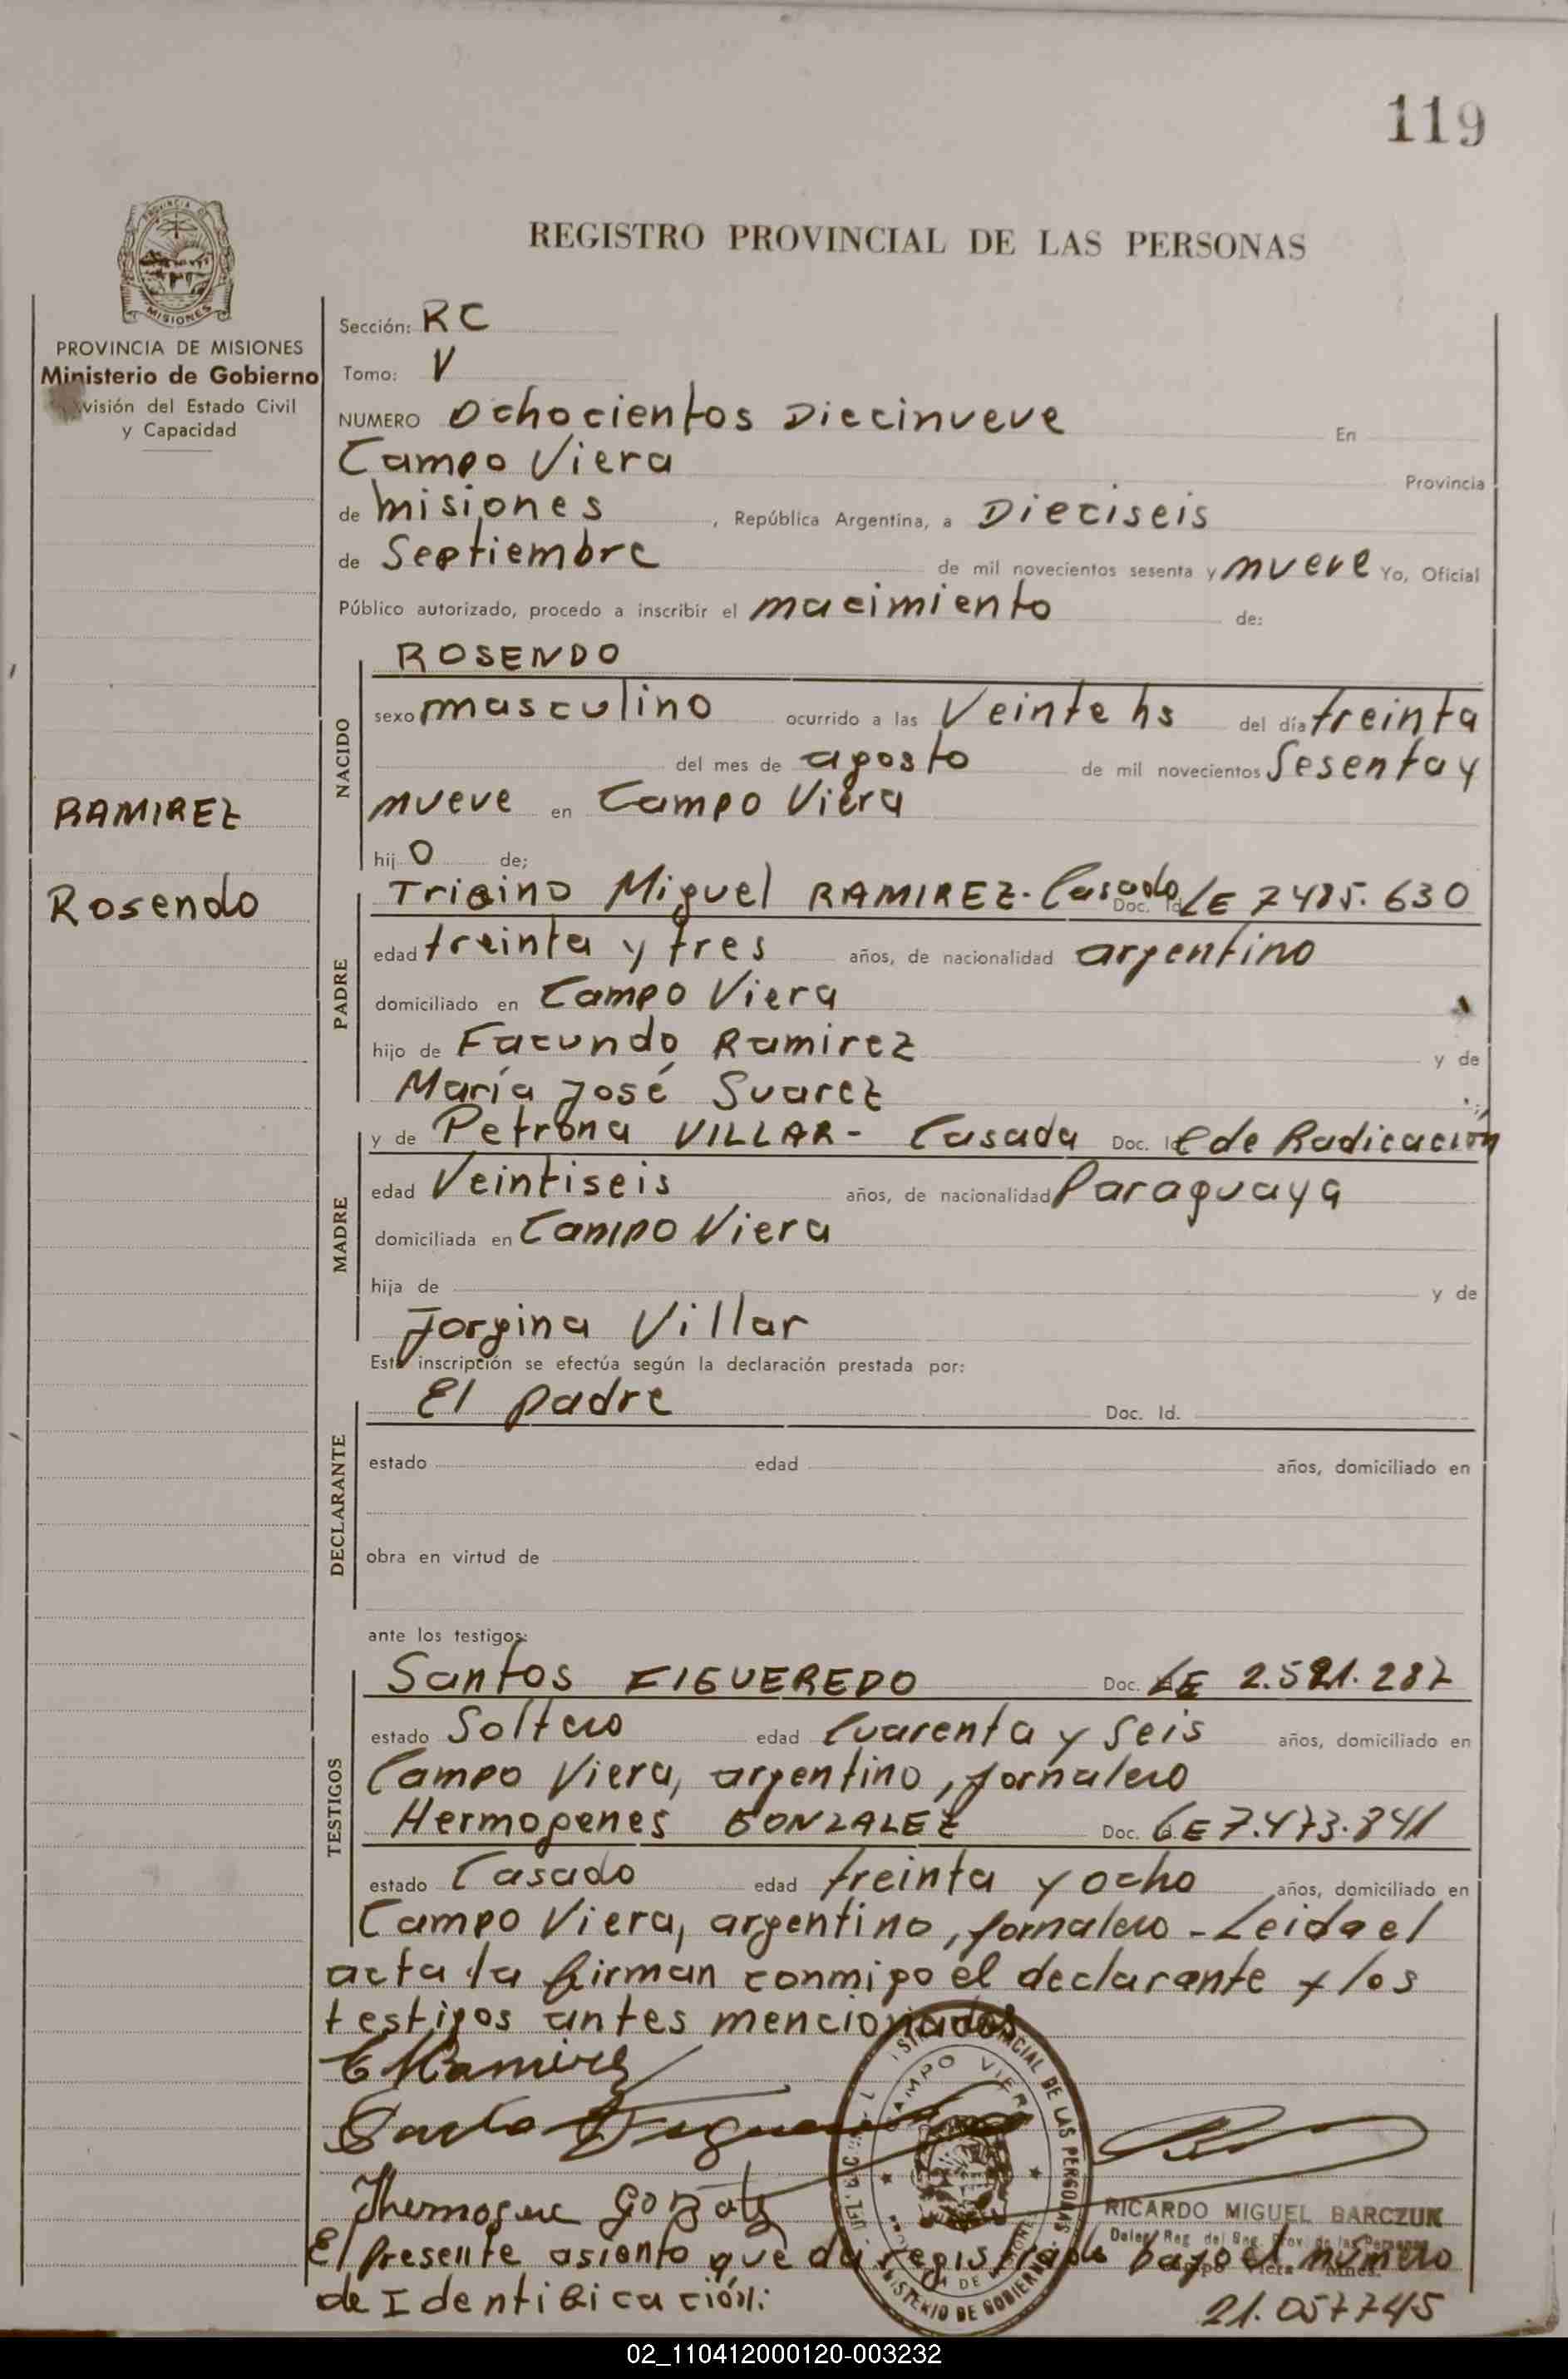 119
REGISTRO PROVINCIAL DE LAS PERSONAS
PROVINCIA DE MISIONES
Ministerio de Gobierno
visión del Estado Civil
y Capacidad
RAMIREZ
Rosendo
Sección: RC
Tomo: V
NUMERO Ochocientos Diecinueve En
Campo Viera Provincia
de misiones, República Argentina, a Dieciseis
de Septiembre de mil novecientos sesenta y nueve Yo, Oficial
Público autorizado, procedo a inscribir el nacimiento de:
NACIDO
ROSENDO
sexo masculino ocurrido a las Veinte hs del día treinta
del mes de agosto de mil novecientos Sesenta y
nueve en Campo Viera
hijo de;
PADRE
Miguel RAMIREZ - Casado Doc. Id. LE 7485.630
edad treinta y tres años, de nacionalidad argentino
domiciliado en Campo Viera
hijo de Facundo Ramirez y de
María José Suarez
MADRE
y de Petrona VILLAR - Casada Doc. Id. C de Radicación
edad Veintiseis años, de nacionalidad Paraguaya
domiciliada en Campo Viera
hija de y de
Jorgina Villar
Esta inscripción se efectúa según la declaración prestada por:
DECLARANTE
El padre Doc. Id.
estado edad años, domiciliado en
obra en virtud de
ante los testigos:
TESTIGOS
Santos FIGUEREDO Doc. LE
estado Soltero edad Cuarenta y Seis años, domiciliado en
Campo Viera, argentino, jornalero
Hermogenes GONZALEZ Doc. LE 7.473.841
estado Casado edad treinta y ocho años, domiciliado en
Campo Viera, argentino, jornalero - Leida el
acta la firman conmigo el declarante y los
testigos antes mencionados
Ramirez
RICARDO MIGUEL BARCZUK
El presente asiento queda registrado bajo el número
de Identificación: 21.057745
02_110412000120-003232